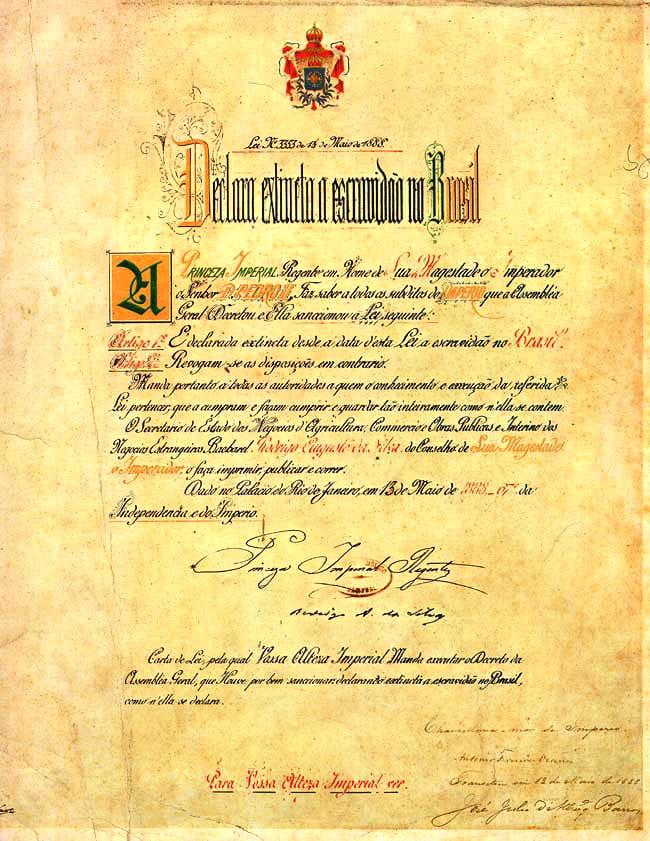 Lei Nº 3353 de 13 de Maio de 1888.
Declara extincta a escravidão no Brasil
A PRINCEZA IMPERIAL Regente em Nome de Sua Magestade o Imperador
o Senhor D. PEDRO II, Faz saber a todos os subditos do IMPERIO que a Assembléa
Geral Decretou e Ella sanccionou a Lei seguinte:
Artigo 1º É declarada extincta desde a data d'esta Lei a escravidão no Brasil.
Artigo 2º Revogam-se as disposições em contrario.
Manda portanto a todas as autoridades a quem o conhecimento e execução da referida
Lei pertencer, que a cumpram e façam cumprir e guardar tão inteiramente como n'ella se contem.
O Secretario de Estado dos Negocios d'Agricultura, Commercio e Obras Publicas e Interino dos
Negocios Estrangeiros Bacharel Rodrigo Augusto da Silva do Conselho de Sua Magestade
o Imperador, o faça imprimir, publicar e correr.
Dado no Palacio do Rio de Janeiro, em 13 de Maio de 1888 - 67º da
Independencia e do Imperio.
Princeza Imperial Regente
Rodrigo A. da Silva
Carta de Lei, pela qual Vossa Alteza Imperial Manda executar o Decreto da
Assembléa Geral, que Houve por bem sanccionar declarando extincta a escravidão no Brasil,
como n'ella se declara.
Chancellaria mór do Imperio
Antonio Ferreira Vianna
Transitou em 13 de Maio de 1888
José Julio d'Albuqº Barros
Para Vossa Alteza Imperial ver.